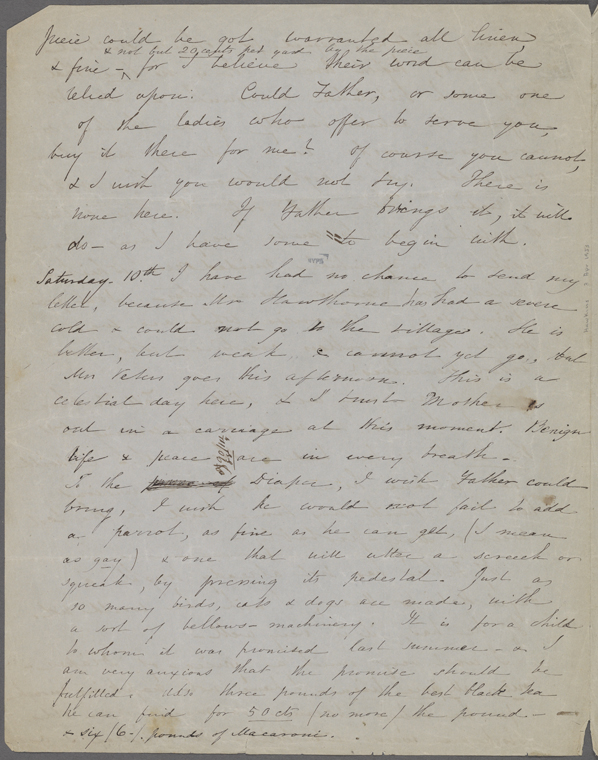 piece could be got warranted all linen,
& not but 20 cents per yard by the piece
& fine — for I believe their word can be
relied upon. Could Father, or some one
of the ladies who offer to serve you,
buy it there for me? Of course you cannot,
& I wish you would not try. There is
none here. If Father brings it, it will
do — as I have some to begin with.
Saturday. 10th. I have had no chance to send my
letter, because Mr Hawthorne has had a severe
cold & could not go to the village. He is
better, but weak & cannot yet go, but
Mrs Peters goes this afternoon. This is a
celestial day here, & I trust Mother is
out in a carriage at this moment. Benign
life & peace are in every breath.
To the piece of Diaper, I wish Father could
bring, I wish he would not fail to add
a parrot, as fine as he can get, (I mean
as gay) & one that will utter a screech or
squeak, by pressing its pedestal. Just as
so many birds, cats & dogs are made, with
a sort of bellows-machinery. It is for a child
to whom it was promised last summer — & I
am very anxious that the promise should be
fulfilled. Also three pounds of the best black tea
he can find for 50 cts (no more) the pound —
& six (6-) pounds of Macaroni.